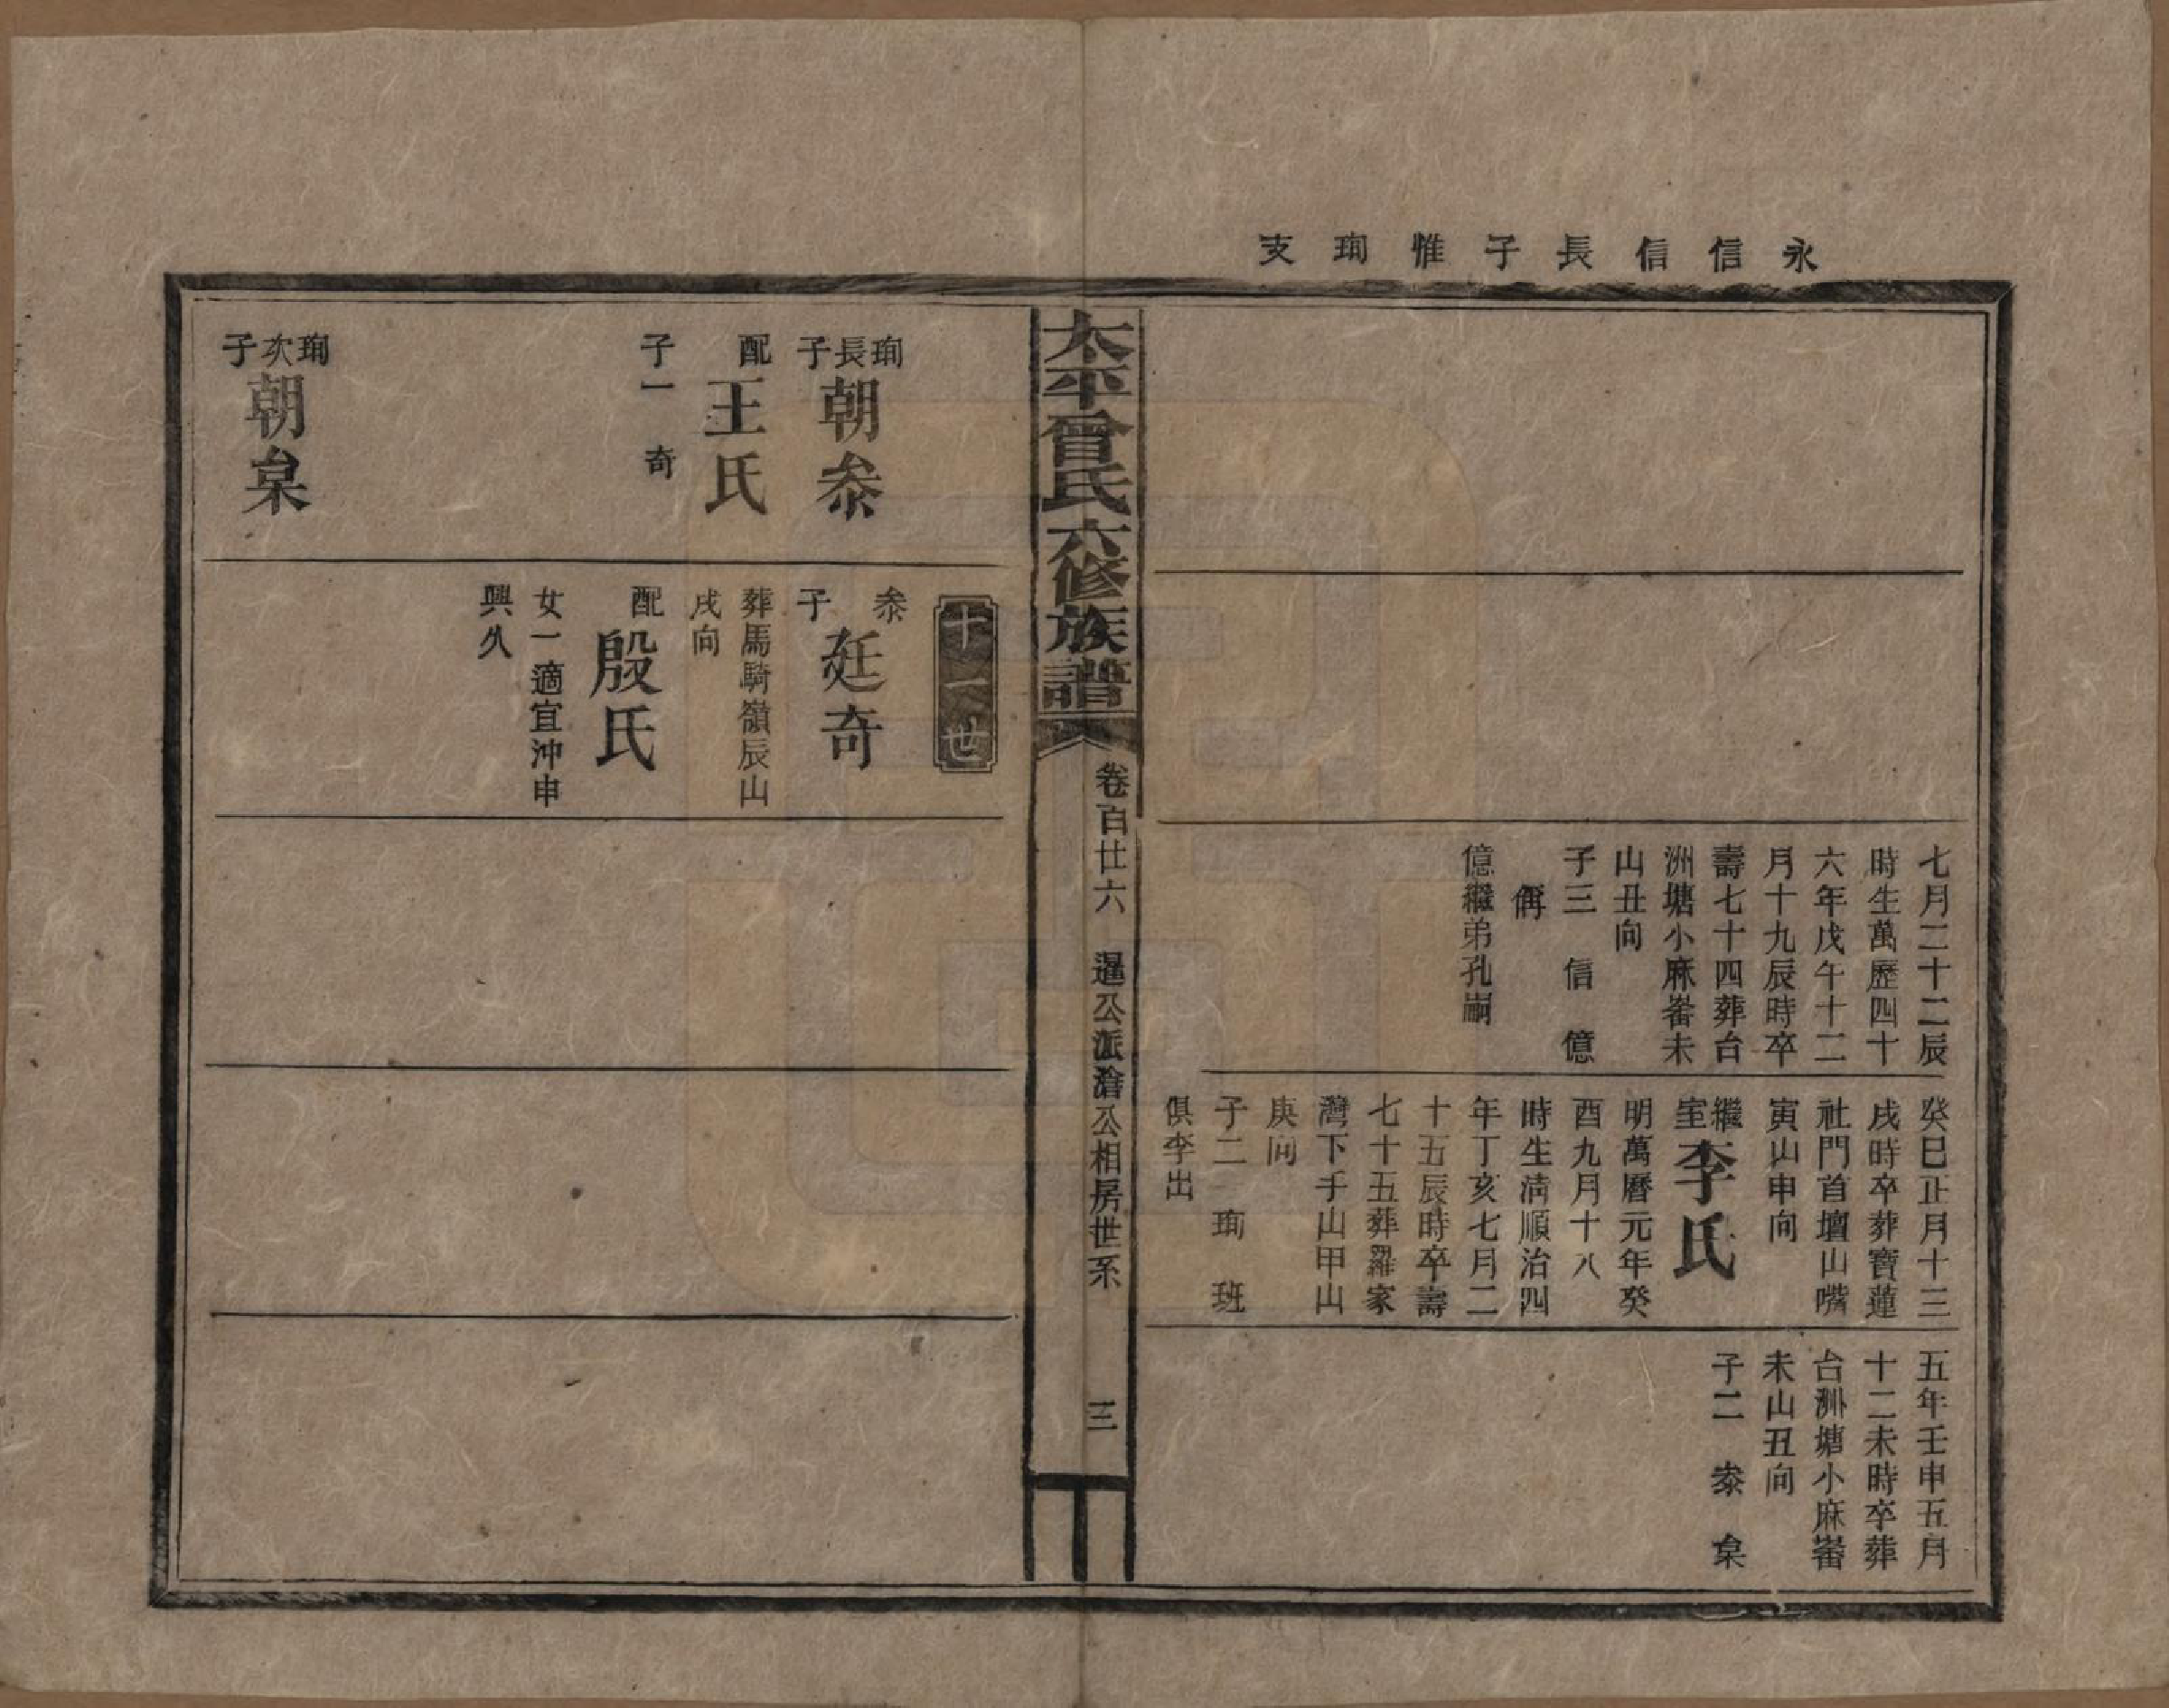 永信信長子惟珣支
七月二十二辰
時生萬歷四十
六年戊午十二
月十九辰時卒
壽七十四葬台
洲塘小麻崙未
山丑向
子三 信 億
偁
億繼弟孔嗣
癸巳正月十三
戌時卒葬寶蓮
社門首壇山嘴
寅山申向
繼室李氏
明萬曆元年癸
酉九月十八
時生淸順治四
年丁亥七月二
十五辰時卒壽
七十五葬羅家
灣下手山甲山
庚向
子二 珣 班
俱李出
五年壬申五月
十二未時卒葬
台洲塘小麻崙
未山丑向
子二 泰 杲
太平曾氏六修族譜
卷百廿六 暹公派滄公相房世系
三
珣長子朝泰
配王氏
子一 奇
珣次子朝杲
十一世
泰子廷奇
葬馬騎嶺辰山
戌向
配殷氏
女一適宜沖申
興久